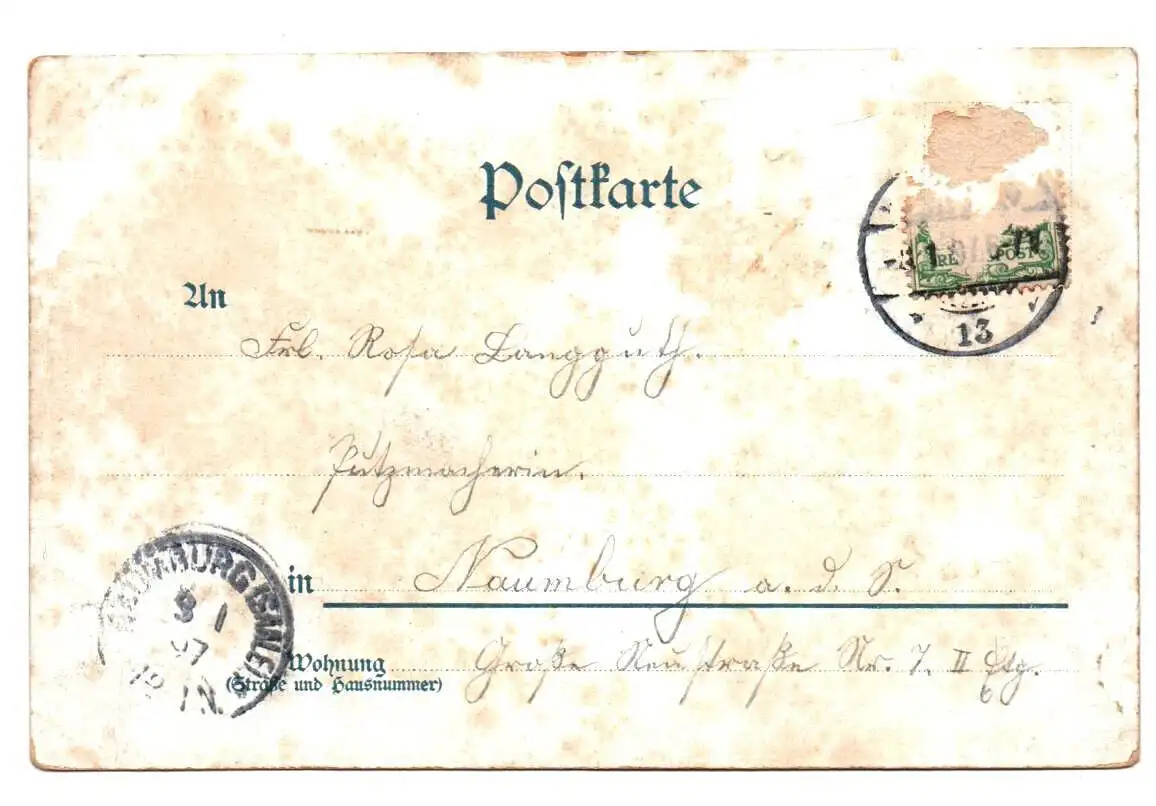 Postkarte
1
POST
13
An
Frl. Rosa Langguth.
Putzmacherin.
in Naumburg a. d. S.
NAUMBURG (SAALE)
3 1
97
N.
Wohnung Große Neustraße Nr. 7. II Etg.
(Straße und Hausnummer)